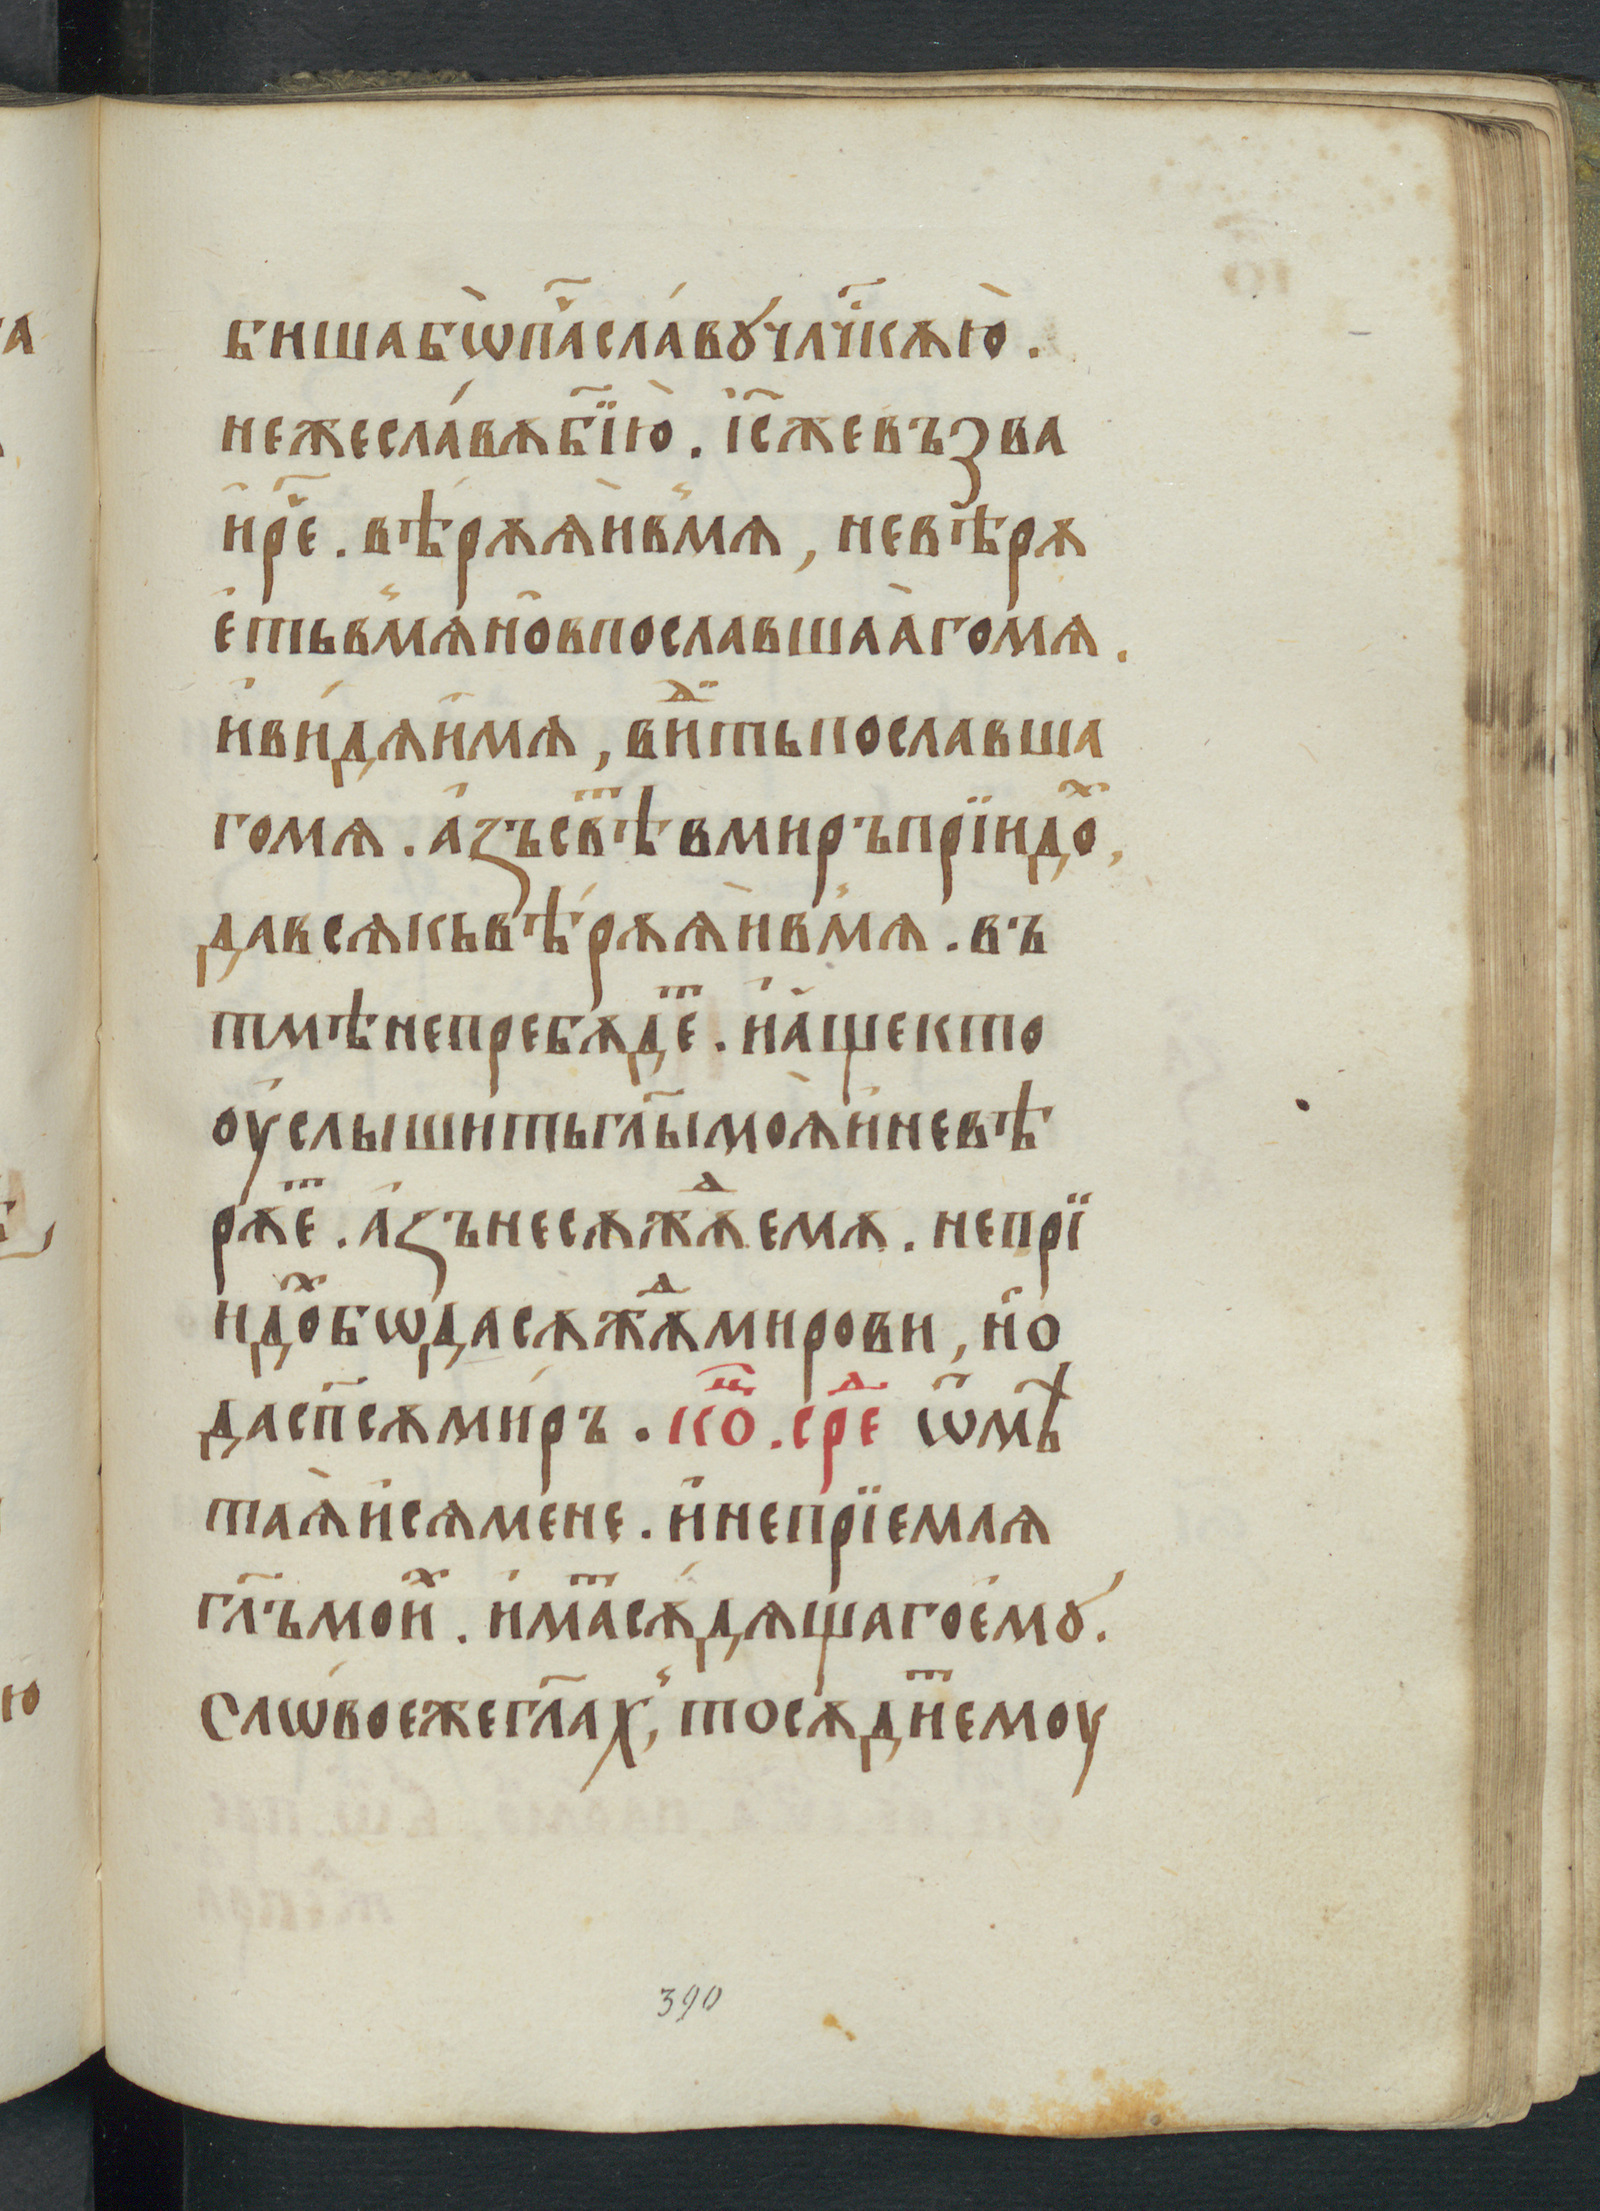 бишабѡ̀па҃сла́вꙋчлч҃кѫю̀.
нежесла́вѫбж҃їю̀. і҆с҃жевъзва
и҆ре҃. вѣ́рѫѧ̀и҆в̾мѧ, невѣрѫ
е҆тьв̾мѧно̑впославшаа̀гомѧ.
и҆ви́дѧи҆мѧ, ви́ⷣтьпославша
гомѧ. а҆́зъсвⷮѣвмиръпрїидоⷯ,
давсѧкьвѣ́рѫѧ̀и҆в̾мѧ. въ
тмѣнепребѫдеⷮ. и҆а҆́щекто
оу҆слышитьглы҃моѧ̀и҆невѣ
рѫеⷮ. а҆́зънесѫжⷣѫемѧ. непрї
идоⷯбѡдасѫжⷣѫмирови, но̑
дасп҃сѧми́ръ. коⷰ҇.среⷣ ѿмѣ
таѧ̀и҆сѧмене. и҆непрїемлѧ
гл҃ъмоиⷯ. и҆маⷮсѫ́дѧщагоемꙋ̀.
Слѡ́воежегл҃ах̾, тосѫ́дⷮиемоу
390